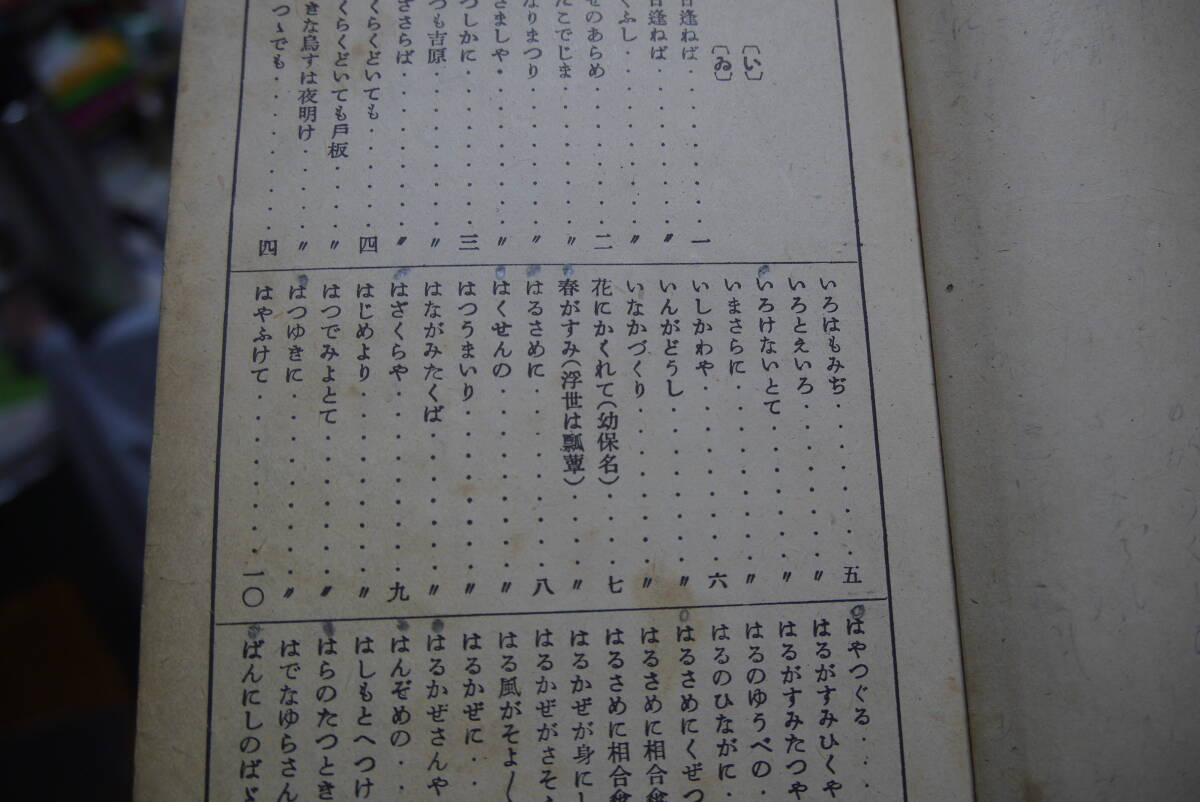 〔い〕
〔ゐ〕
逢ねば・・・・・・・・一
逢ねば・・・・・・・・〃
くふし・・・・・・・・〃
せのあらめ・・・・・・二
たこでじま・・・・・・〃
なりまつり・・・・・・〃
さましや・・・・・・・〃
つしかに・・・・・・・三
つも吉原・・・・・・・〃
ざさらば・・・・・・・〃
くらくどいても・・・・四
くらくどいても戸板・・〃
きな烏すは夜明け・・・〃
つゝでも・・・・・・・四
いろはもみぢ・・・・・・・五
いろとえいろ・・・・・・・〃
いろけないとて・・・・・・〃
いまさらに・・・・・・・・〃
いしかわや・・・・・・・・六
いんがどうし・・・・・・・〃
いなかづくり・・・・・・・〃
花にかくれて(幼保名)・・・七
春がすみ(浮世は瓢蕈)・・・〃
はるさめに・・・・・・・・八
はくせんの・・・・・・・・〃
はつうまいり・・・・・・・〃
はながみたくば・・・・・・〃
はざくらや・・・・・・・・九
はじめより・・・・・・・・〃
はつでみよとて・・・・・・〃
はつゆきに・・・・・・・・〃
はやふけて・・・・・・・・一〇
はやつぐる・・・
はるがすみひくや
はるがすみたつや
はるのゆうべの・
はるのひながに・
はるさめにくぜつ
はるさめに相合傘
はるさめに相合傘
はるかぜが身にし
はるかぜがさそ
はる風がそよ〳〵
はるかぜに・・
はるかぜさんや
はんぞめの・・
はしもとへつけ
はらのたつとき
はでなゆらさん
ばんにしのばゞ